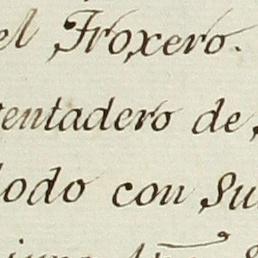 el Froxero.
tentadero de
lodo con Su